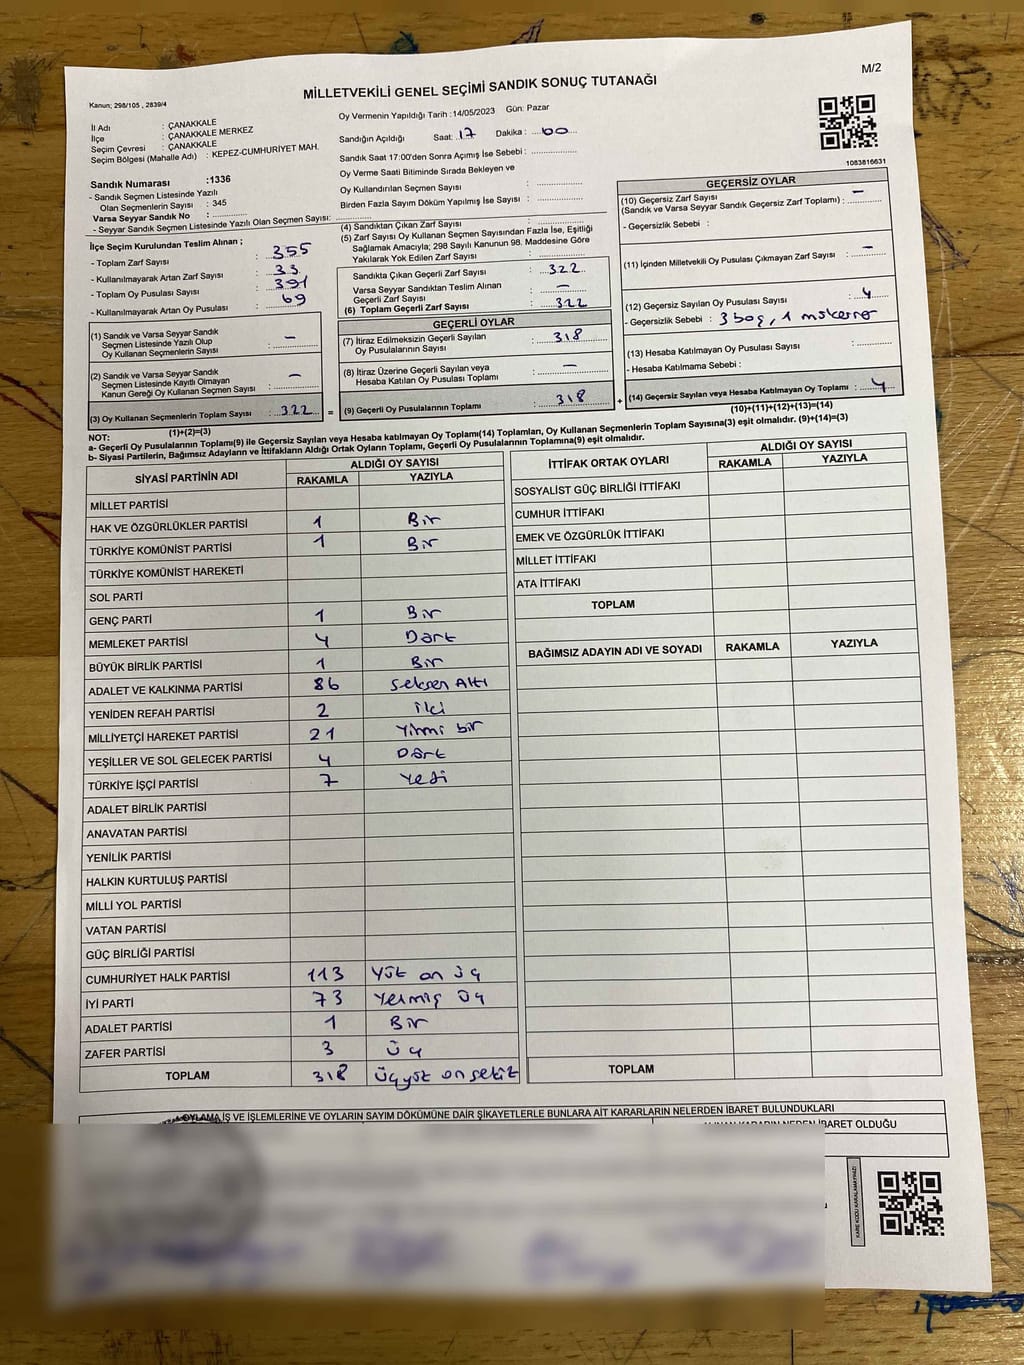 MİLLETVEKİLİ GENEL SEÇİMİ SANDIK SONUÇ TUTANAĞI
M/2
Kanun; 298/105 , 2839/4
İl Adı : ÇANAKKALE
İlçe : ÇANAKKALE MERKEZ
Seçim Çevresi : ÇANAKKALE
Seçim Bölgesi (Mahalle Adı) : KEPEZ-CUMHURİYET MAH.
Sandık Numarası :1336
- Sandık Seçmen Listesinde Yazılı
Olan Seçmenlerin Sayısı : 345
Varsa Seyyar Sandık No : ..............
- Seyyar Sandık Seçmen Listesinde Yazılı Olan Seçmen Sayısı: ..............
Oy Vermenin Yapıldığı Tarih :14/05/2023 Gün: Pazar
Sandığın Açıldığı Saat: 17 Dakika : 00
Sandık Saat 17:00'den Sonra Açımış İse Sebebi : ..............
Oy Verme Saati Bitiminde Sırada Bekleyen ve
Oy Kullandırılan Seçmen Sayısı : ..............
Birden Fazla Sayım Döküm Yapılmış İse Sayısı : ..............
1083816631
İlçe Seçim Kurulundan Teslim Alınan ;
- Toplam Zarf Sayısı : 355
- Kullanılmayarak Artan Zarf Sayısı : 33
- Toplam Oy Pusulası Sayısı : 391
- Kullanılmayarak Artan Oy Pusulası : 69
(1) Sandık ve Varsa Seyyar Sandık
Seçmen Listesinde Yazılı Olup
Oy Kullanan Seçmenlerin Sayısı : –
(2) Sandık ve Varsa Seyyar Sandık
Seçmen Listesinde Kayıtlı Olmayan
Kanun Gereği Oy Kullanan Seçmen Sayısı : –
(3) Oy Kullanan Seçmenlerin Toplam Sayısı : 322 =
(1)+(2)=(3)
(4) Sandıktan Çıkan Zarf Sayısı
(5) Zarf Sayısı Oy Kullanan Seçmen Sayısından Fazla İse, Eşitliği
Sağlamak Amacıyla; 298 Sayılı Kanunun 98. Maddesine Göre
Yakılarak Yok Edilen Zarf Sayısı :
Sandıkta Çıkan Geçerli Zarf Sayısı : 322
Varsa Seyyar Sandıktan Teslim Alınan
Geçerli Zarf Sayısı : –
(6) Toplam Geçerli Zarf Sayısı : 322
GEÇERLİ OYLAR
(7) İtiraz Edilmeksizin Geçerli Sayılan
Oy Pusulalarının Sayısı : 318
(8) İtiraz Üzerine Geçerli Sayılan veya
Hesaba Katılan Oy Pusulası Toplamı : –
(9) Geçerli Oy Pusulalarının Toplamı : 318 +
GEÇERSİZ OYLAR
(10) Geçersiz Zarf Sayısı
(Sandık ve Varsa Seyyar Sandık Geçersiz Zarf Toplamı) : –
- Geçersizlik Sebebi :
(11) İçinden Milletvekili Oy Pusulası Çıkmayan Zarf Sayısı : –
(12) Geçersiz Sayılan Oy Pusulası Sayısı : 4
- Geçersizlik Sebebi : 3 boş, 1 mükerrer
(13) Hesaba Katılmayan Oy Pusulası Sayısı : ..............
- Hesaba Katılmama Sebebi :
(14) Geçersiz Sayılan veya Hesaba Katılmayan Oy Toplamı : 4
(10)+(11)+(12)+(13)=(14)
NOT:
a- Geçerli Oy Pusulalarının Toplamı(9) ile Geçersiz Sayılan veya Hesaba katılmayan Oy Toplamı(14) Toplamları, Oy Kullanan Seçmenlerin Toplam Sayısına(3) eşit olmalıdır. (9)+(14)=(3)
b- Siyasi Partilerin, Bağımsız Adayların ve İttifakların Aldığı Ortak Oyların Toplamı, Geçerli Oy Pusulalarının Toplamına(9) eşit olmalıdır.
SİYASİ PARTİNİN ADI ALDIĞI OY SAYISI
RAKAMLA YAZIYLA
MİLLET PARTİSİ
HAK VE ÖZGÜRLÜKLER PARTİSİ 1 Bir
TÜRKİYE KOMÜNİST PARTİSİ 1 Bir
TÜRKİYE KOMÜNİST HAREKETİ
SOL PARTİ
GENÇ PARTİ 1 Bir
MEMLEKET PARTİSİ 4 Dört
BÜYÜK BİRLİK PARTİSİ 1 Bir
ADALET VE KALKINMA PARTİSİ 86 Seksen Altı
YENİDEN REFAH PARTİSİ 2 İki
MİLLİYETÇİ HAREKET PARTİSİ 21 Yirmi bir
YEŞİLLER VE SOL GELECEK PARTİSİ 4 Dört
TÜRKİYE İŞÇİ PARTİSİ 7 Yedi
ADALET BİRLİK PARTİSİ
ANAVATAN PARTİSİ
YENİLİK PARTİSİ
HALKIN KURTULUŞ PARTİSİ
MİLLİ YOL PARTİSİ
VATAN PARTİSİ
GÜÇ BİRLİĞİ PARTİSİ
CUMHURİYET HALK PARTİSİ 113 Yüz on üç
İYİ PARTİ 73 Yetmiş üç
ADALET PARTİSİ 1 Bir
ZAFER PARTİSİ 3 Üç
TOPLAM 318 Üçyüz onsekiz
İTTİFAK ORTAK OYLARI ALDIĞI OY SAYISI
RAKAMLA YAZIYLA
SOSYALİST GÜÇ BİRLİĞİ İTTİFAKI
CUMHUR İTTİFAKI
EMEK VE ÖZGÜRLÜK İTTİFAKI
MİLLET İTTİFAKI
ATA İTTİFAKI
TOPLAM
BAĞIMSIZ ADAYIN ADI VE SOYADI RAKAMLA YAZIYLA
TOPLAM
OYLAMA İŞ VE İŞLEMLERİNE VE OYLARIN SAYIM DÖKÜMÜNE DAİR ŞİKAYETLERLE BUNLARA AİT KARARLARIN NELERDEN İBARET BULUNDUKLARI
ALINAN KARARIN NEDEN İBARET OLDUĞU
KARE KODU KARALAMAYINIZ!